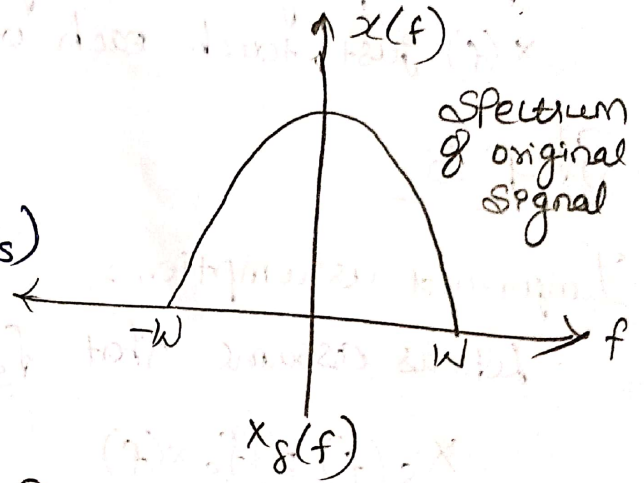 x(f)
Spectrum
of original
signal
s)
-W
W
f
Xδ(f)